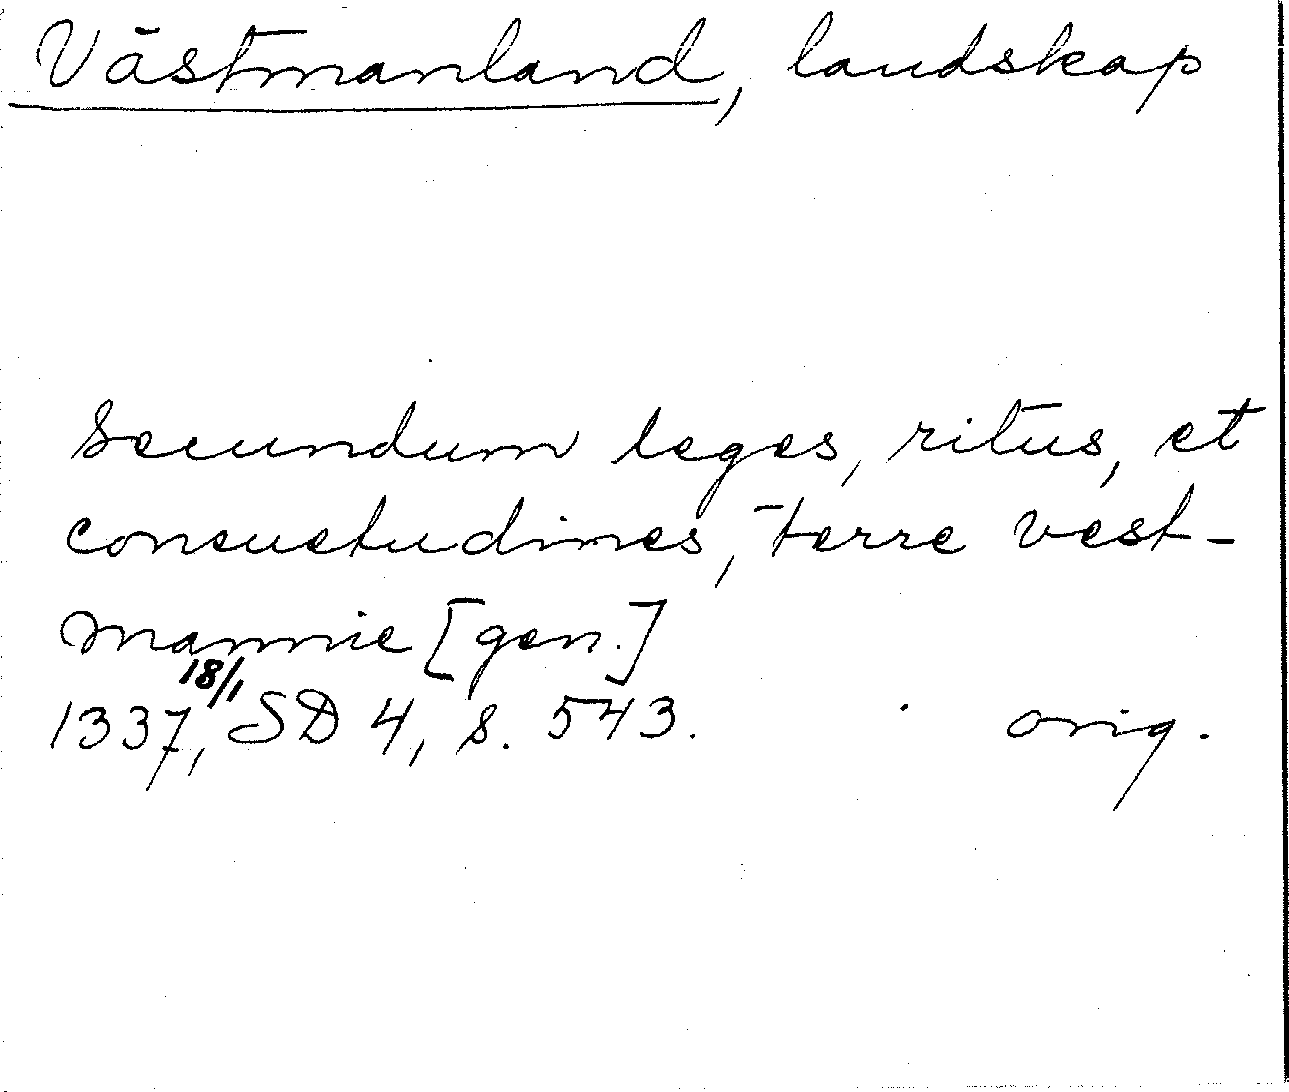 Västmanland, landskap
secundum leges, ritus, et
consuetudines, terre vest-
mannie [gen.]
1337, 18/1 SD 4, s. 543. orig.